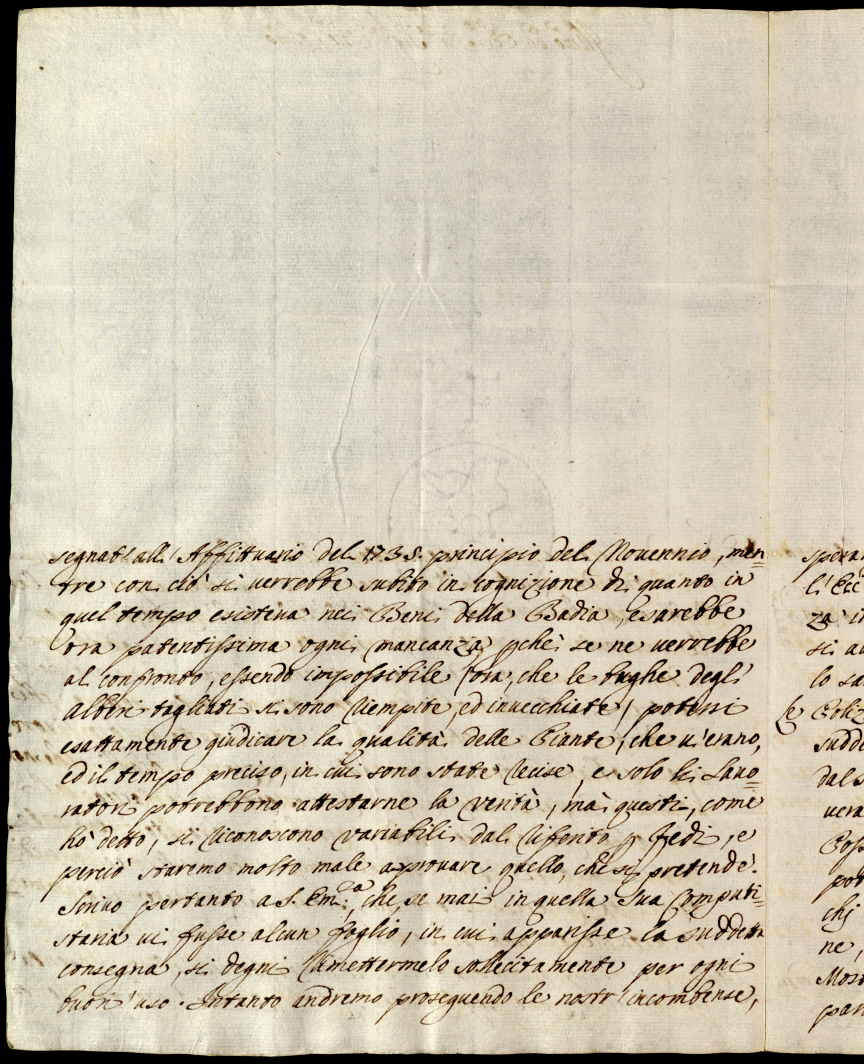 segnati all'Affittuario del 1735. principio del Novennio, men=
tre con ciò si verrebbe subito in cognizione di quanto in
quel tempo esisteva nei Beni della Badia, e sarebbe
ora patentissima ogni mancanza, pchè se ne verrebbe
al confronto, essendo impossibile ora, che le bughe degl'
Alberi tagliati si sono riempite, ed invecchiate, potersi
esattamente giudicare la qualità delle Piante, che v'erano,
ed il tempo preciso, in cui sono state recise, e solo li Lavo=
ratori potrebbono attestarne la verità, mà questi, come
hò detto, si riconoscono variabili dal riferito p fedi, e
perciò staremo molto male a provare quello, che si pretende.
Scrivo pertanto a S. Em.ª, che, se mai in quella Sua Computi=
staria vi fusse alcun foglio, in cui apparisse la suddetta
consegna, si degni rimettermelo sollecitamente per ogni
buon'uso. Intanto andremo proseguendo le nostr'incombense,
spera
l'Ecc
za i
si a
lo sa
Poli
sudd
dal s
vera
Poss
pot
chi
ne,
Most
par